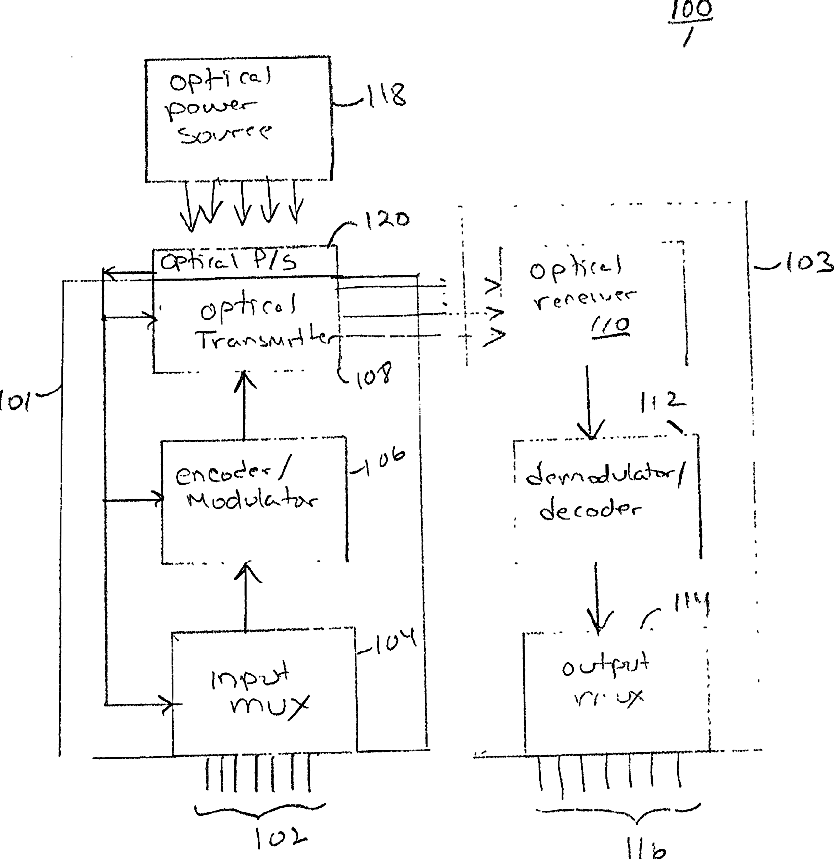 100
optical
power
source
118
120
optical P/S
optical
Transmitter
108
optical
receiver
110
103
101
112
encoder/
Modulator
106
demodulator/
decoder
114
input
mux
104
output
mux
102
116